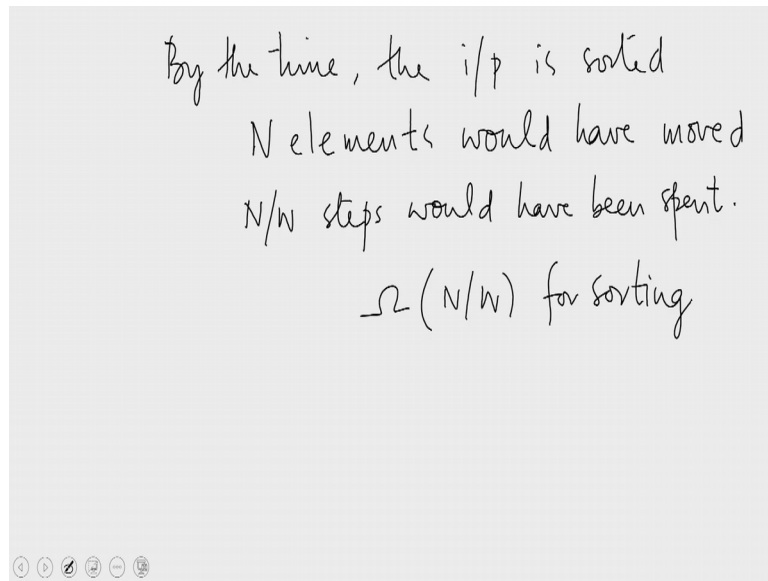 By the time, the i/p is sorted
N elements would have moved
N/W steps would have been spent.
Ω(N/W) for sorting